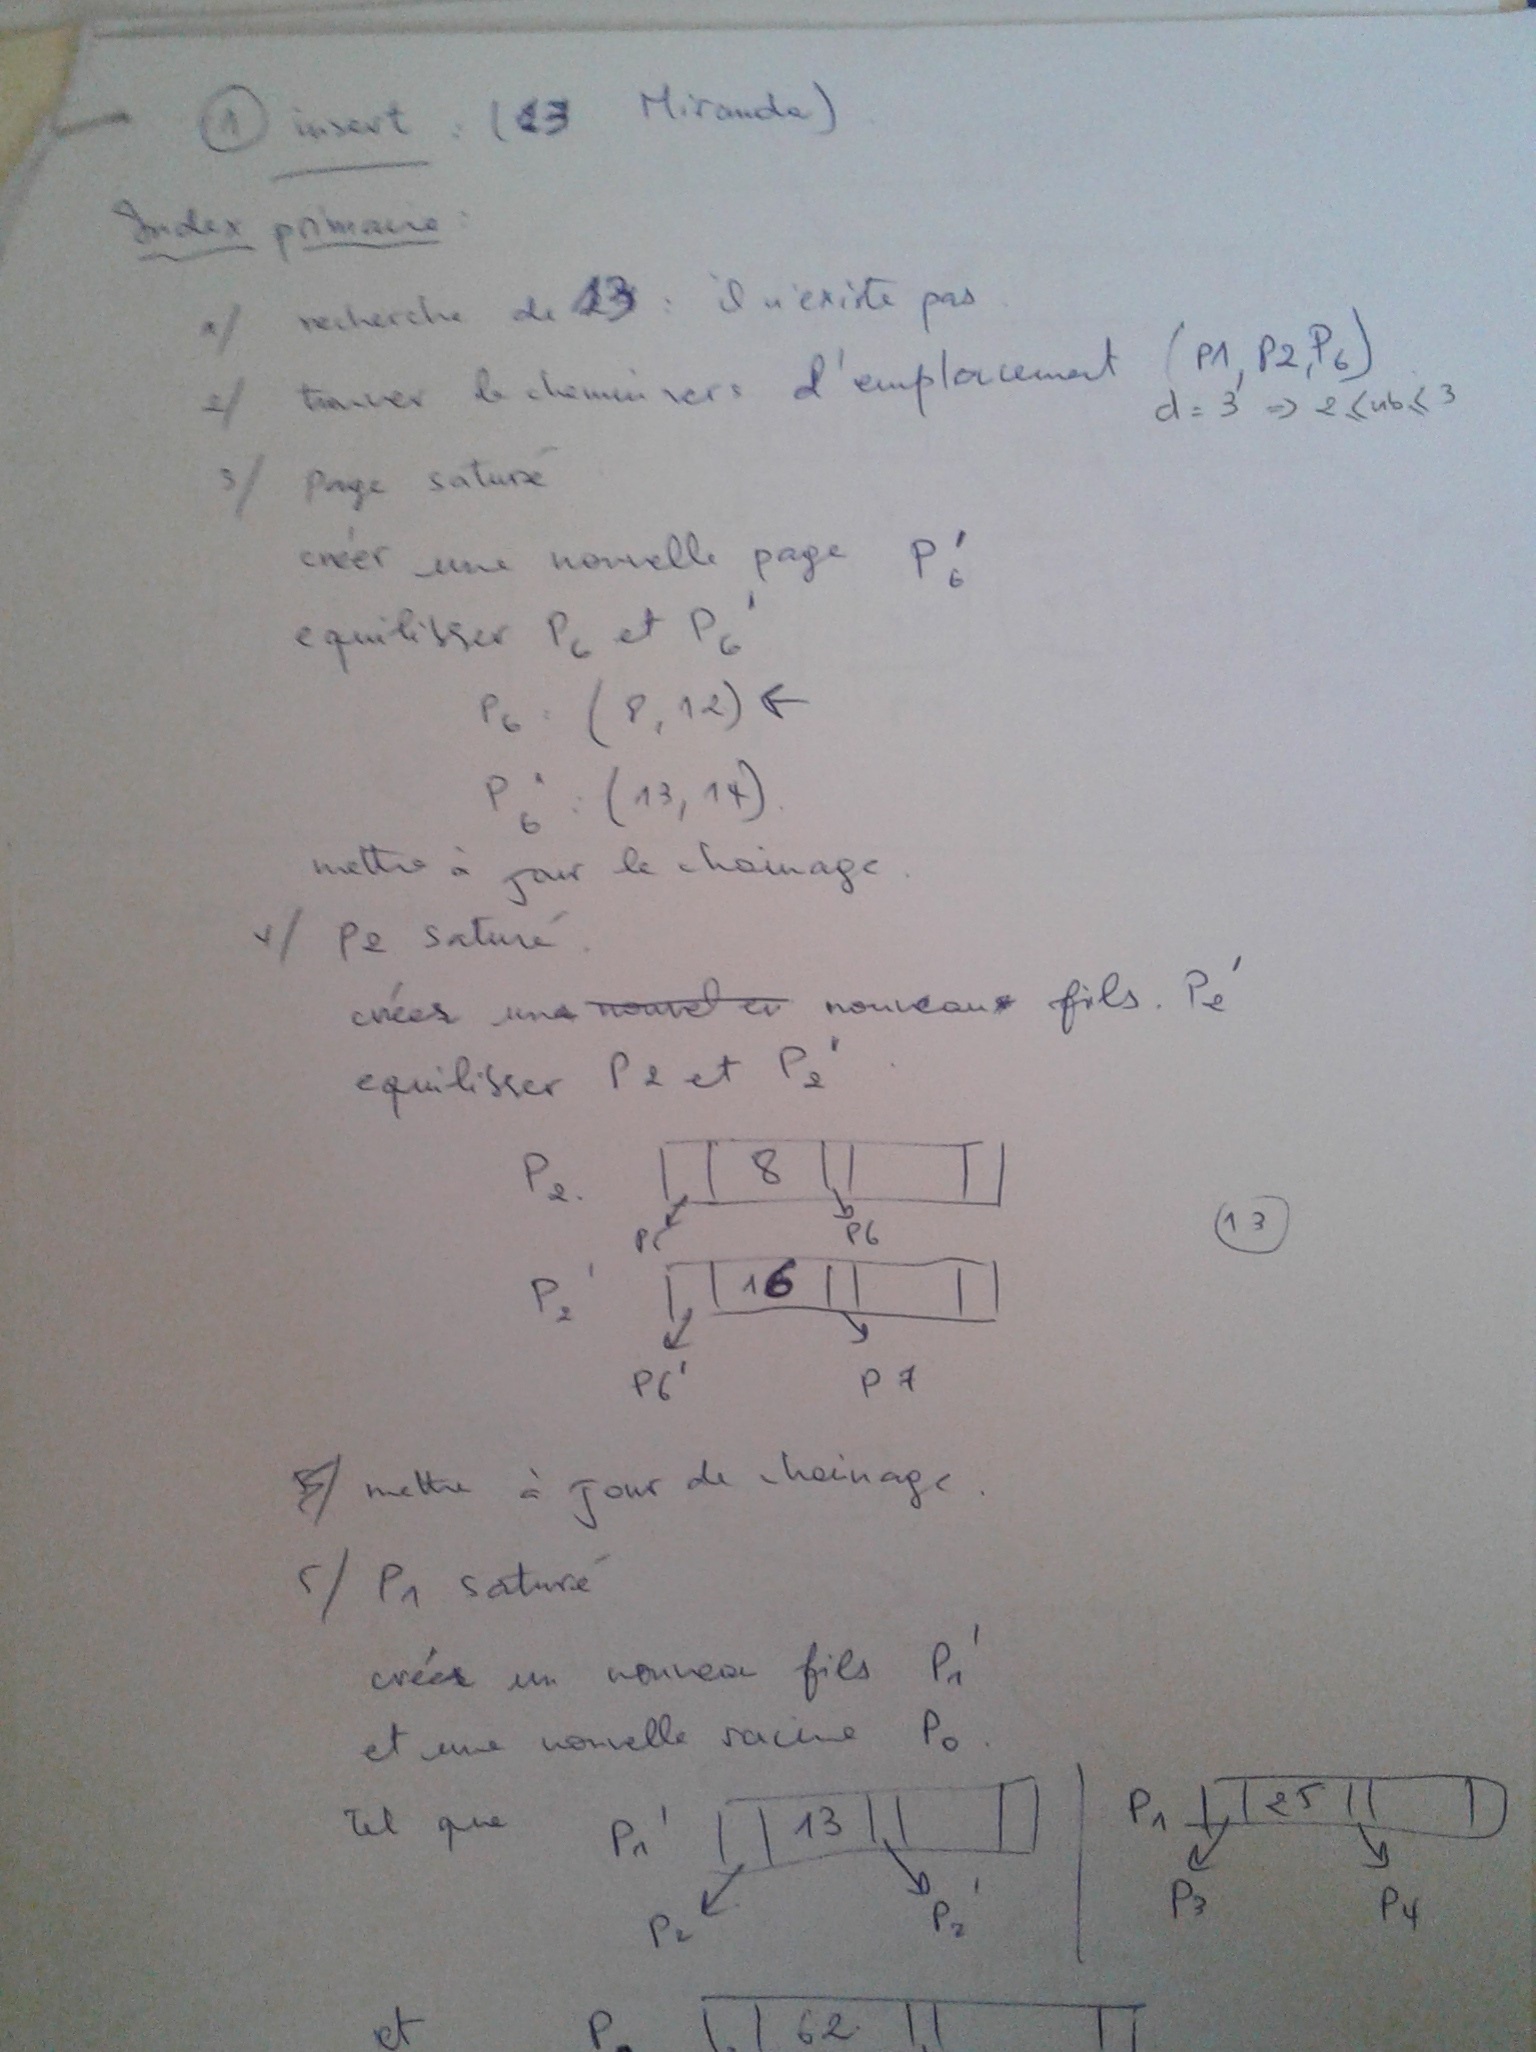 ① insert : (13 Miranda)
Index primaire :
1/ recherche de 13 : il n'existe pas.
2/ trouver le chemin vers l'emplacement (P1, P2, P6)
d = 3 => 2 ≤ nb ≤ 3
3/ Page saturé
créer une nouvelle page P6'
equilibrer P6 et P6'
P6 : (8, 12) ←
P6' : (13, 14).
mettre à jour le chainage.
4/ P2 saturé.
créer un nouveau fils. P2'
equilibrer P2 et P2'.
P2. 8
P5 P6
13
P2' 16
P6' P7
mettre à jour le chainage.
5/ P1 saturé
créer un nouveau fils P1'
et une nouvelle racine P0.
Tel que P1' 13 P1 25
P2 P2' P3 P4
et 62